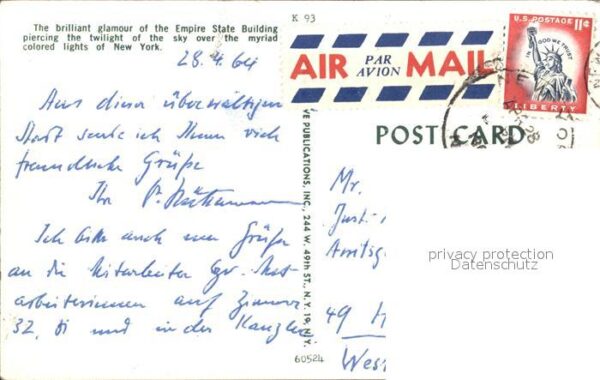 The brilliant glamour of the Empire State Building
piercing the twilight of the sky over the myriad
colored lights of New York.
28.4.64
Aus dieser überwältigenden
Stadt sende ich Ihnen viele
freundliche Grüße
Ihr
Ich bitte auch um Grüße
an die Mitarbeiter bzw. Mit-
arbeiterinnen auf Zimmer
32, 81 und in der Kanzlei
K 93
AIR PAR AVION MAIL
U.S. POSTAGE 11¢
IN GOD WE TRUST
LIBERTY
POST CARD
VE PUBLICATIONS, INC., 244 W. 49th ST., N.Y. 19, N.Y.
60524
Mr.
Just.-
Amtsg
49 H
West
privacy protection
Datenschutz